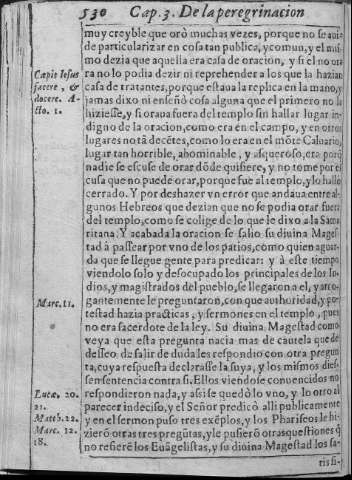 530 Cap. 3. De la peregrinacion
muy creyble que orò muchas vezes, porque no se auia
de particularizar en cosa tan publica, y comun, y el mis
mo dezia que aquella era casa de oracion, y si el no ora
Cæpit Iesus
facere, &
docere. A-
cto. 1.
ra no lo podia dezir ni reprehender a los que la hazian
casa de tratantes, porque estaua la replica en la mano, y
jamas dixo ni enseñò cosa alguna que el primero no la
hiziesse, y si oraua fuera del templo sin hallar lugar in-
digno de la oracion, como era en el campo, y en otros
lugares no tã decẽtes, como lo era en el mõte Caluario,
lugar tan horrible, abominable, y asqueroso, era porq̃
nadie se escuse de orar dõde quisiere, y no tome por es
cusa que no puede orar, porque fue al templo, y le hallò
cerrado. Y por deshazer vn error que andaua entre al-
gunos Hebreos que dezian que no se podia orar fuera
del templo, como se colige de lo que le dixo a la Sama
ritana. Y acabada la oracion se salio su diuina Mages
tad à passear por vno de los patios, como quien aguar-
da que se llegue gente para predicar: y à este tiempo
viendolo solo y desocupado los principales de los Iu-
dios, y magistrados del pueblo, se llegaron a el, y arro-
Marc. 11.
gantemente le preguntaron, con que authoridad, y po-
testad hazia practicas, y sermones en el templo, pues
no era sacerdote de la ley. Su diuina Magestad como
veya que esta pregunta nacia mas de cautela que de
desseo de salir de duda les respondio con otra pregun
ta, cuya respuesta declarasse la suya, y los mismos dies-
sen sentencia contra si. Ellos viendose conuencidos no
Lucæ. 20.
21.
Math. 22.
Marc. 12.
18.
respondieron nada, y assi se quedò lo vno, y lo otro al
parecer indeciso, y el Señor predicò alli publicamente
y en el sermon puso tres exẽplos, y los Phariseos le hi-
zierõ otras tres pregũtas, y le pusierõ otras questiones q̃
no refierẽ los Euãgelistas, y su diuina Magestad los sa-
tis fi-